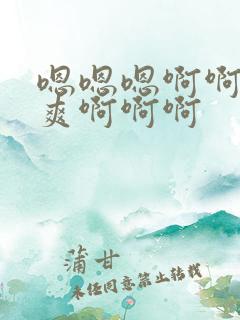 嗯嗯嗯啊啊
爽啊啊啊
蒲甘
未经同意禁止转载